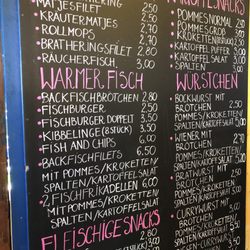 MATJESFILET 2,50
KRÄUTERMATJES 2,50
ROLLMOPS 2,70
BRATHERINGSFILET 2,80
RÄUCHERFISCH
WARMER FISCH
BACKFISCHBRÖTCHEN 2,80
FISCHBURGER 2,50
FISCHBURGER DOPPELT 3,50
KIBBELINGE (8 STÜCK) 3,50
FISH AND CHIPS 6,00
BACKFISCHFILETS 6,50
MIT POMMES/KROKETTEN/
SPALTEN/KARTOFFELSALAT
2 FISCHFRIKADELLEN 6,00
MIT POMMES/KROKETTEN/
SPALTEN/KARTOFFELSALAT
FLEISCHIGE SNACKS
KARTOFFELSNACKS
POMMES NORMAL
POMMES GROß
KROKETTEN
KARTOFFEL PUFFER
KARTOFFEL SALAT
SPALTEN
WÜRSTCHEN
BOCKWURST MIT
BRÖTCHEN
POMMES/KROKETTEN
SPALTEN/KARTOFFELSALAT
WIENER MIT
BRÖTCHEN
POMMES/KROKETTEN
SPALTEN/KARTOFFEL SALAT
BRATWURST MIT
BRÖTCHEN
POMMES/KROKETTEN
SPALTEN/KARTOFFELSALAT
CURRYWURST MIT
BRÖTCHEN